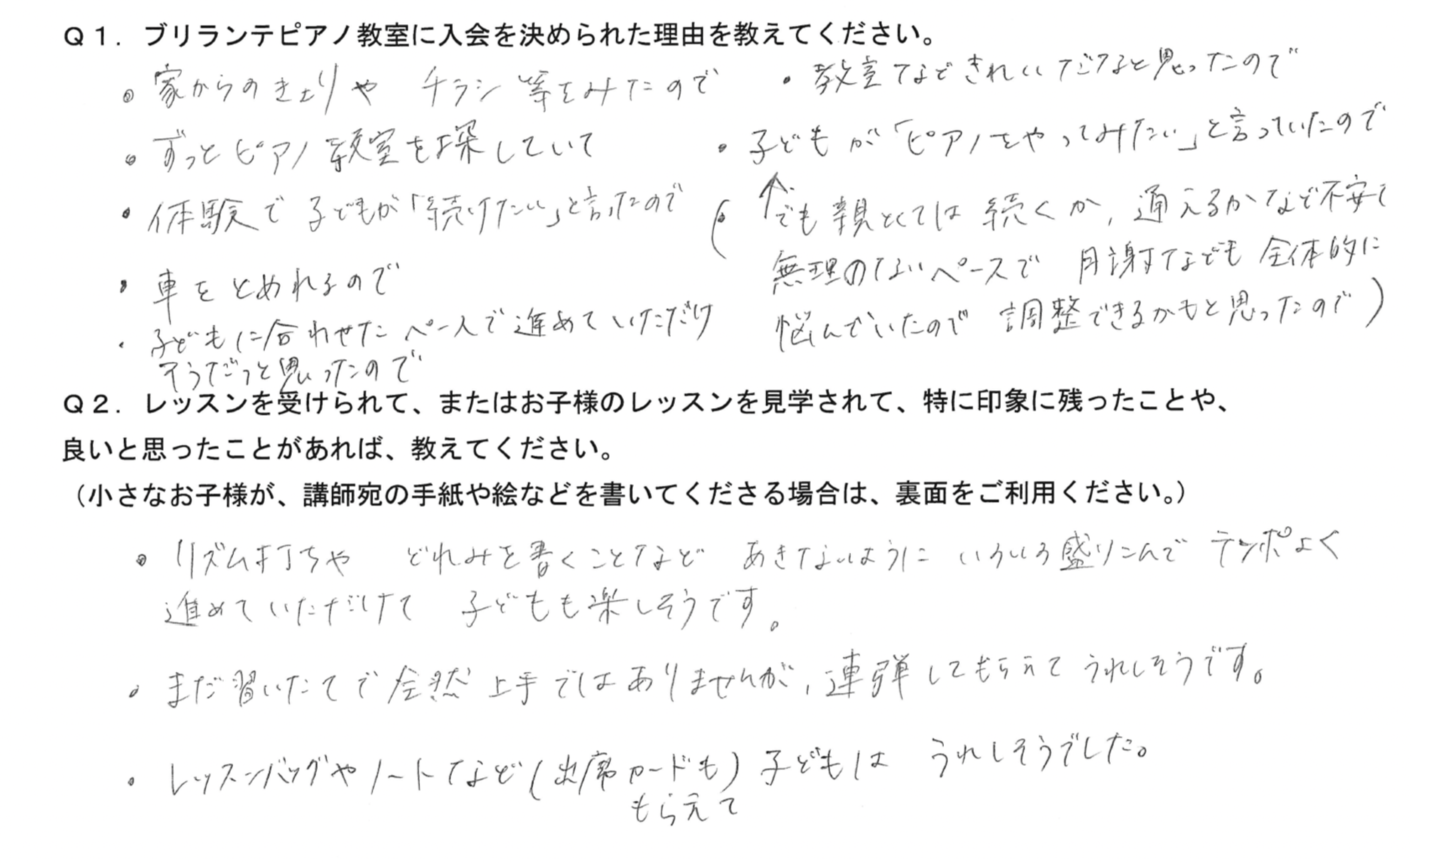 Q1. ブリランテピアノ教室に入会を決められた理由を教えてください。
・家からのきょりや チラシ等をみたので
・ずっとピアノ教室を探していて
・体験で子どもが「続けたい」と言ったので
・車をとめれるので
・子どもに合わせたペースで進めていただけ
そうだっと思ったので
・教室などきれいだなと思ったので
・子どもが「ピアノをやってみたい」と言っていたので
(↑でも親としては続くか、通えるかなど不安で
無理のないペースで 月謝なども全体的に
悩んでいたので 調整できるかもと思ったので)
Q2. レッスンを受けられて、またはお子様のレッスンを見学されて、特に印象に残ったことや、
良いと思ったことがあれば、教えてください。
(小さなお子様が、講師宛の手紙や絵などを書いてくださる場合は、裏面をご利用ください。)
・リズム打ちや どれみを書くことなど あきないように いろいろ盛りこんで テンポよく
進めていただけて 子どもも楽しそうです。
・まだ習いたてで全然上手ではありませんが、連弾してもらえてうれしそうです。
・レッスンバッグやノートなど(出席カードも)子どもは うれしそうでした。
もらえて